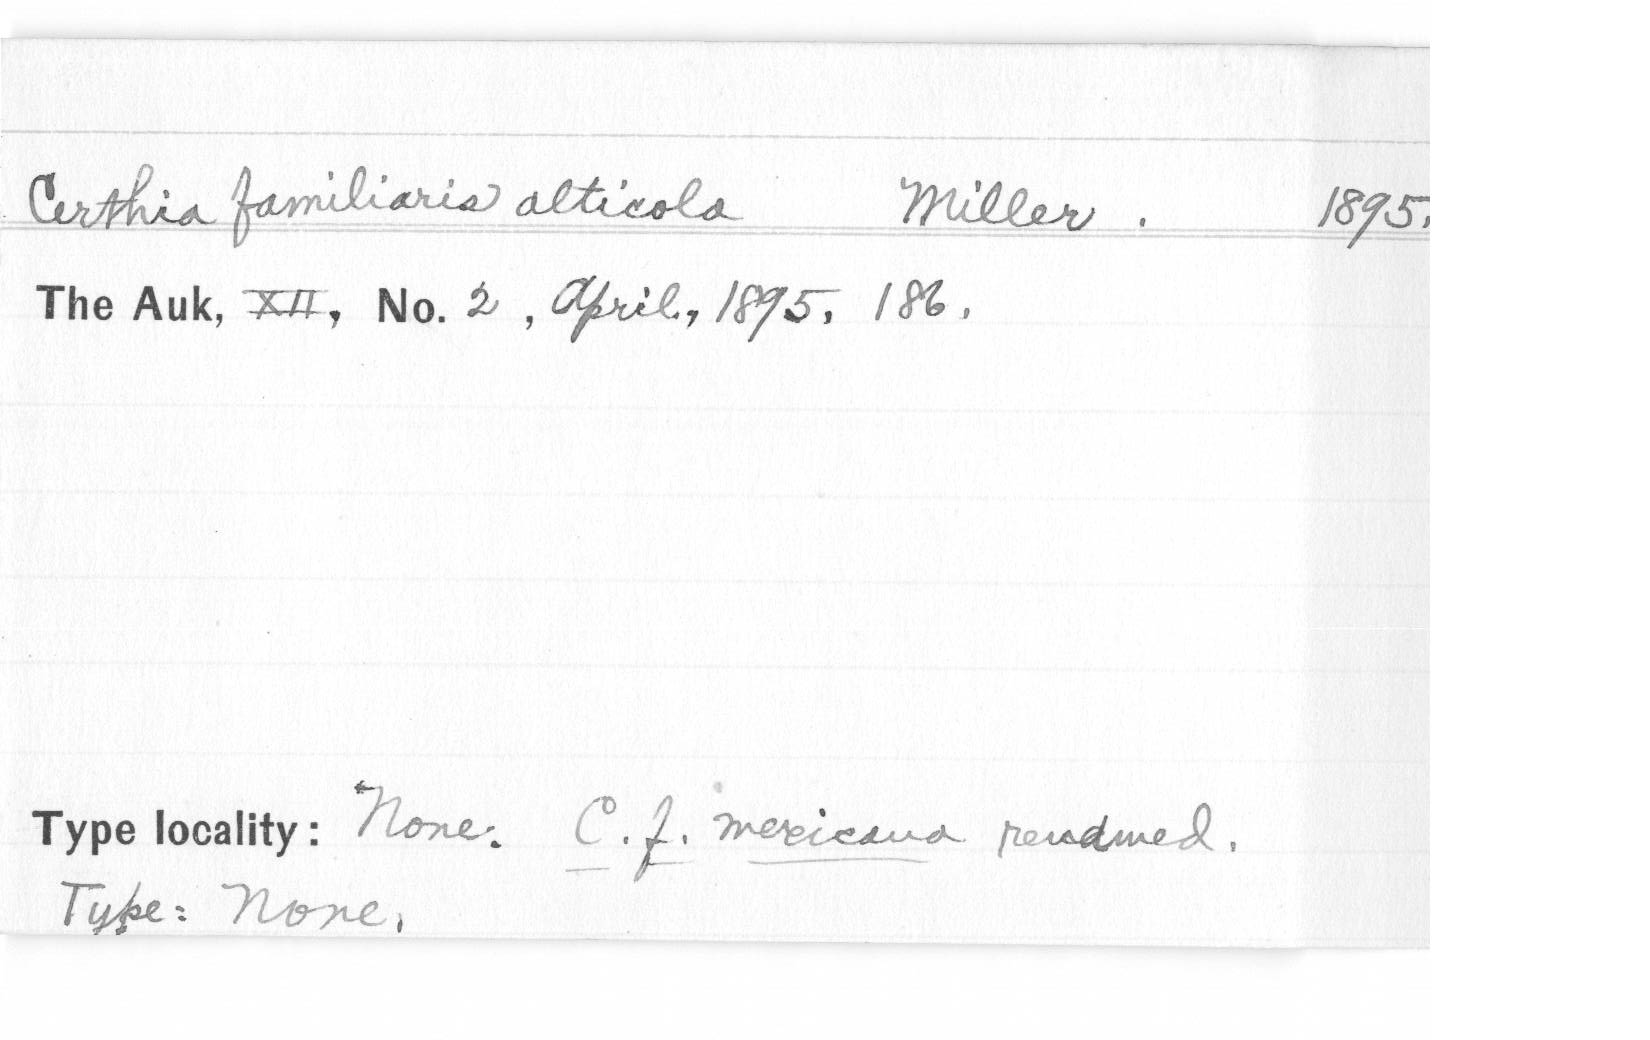 Certhia familiaris alticola Miller. 1895.
The Auk, XII, No. 2, April, 1895, 186.
Type locality: None. C. f. mexicana renamed.
Type: None.